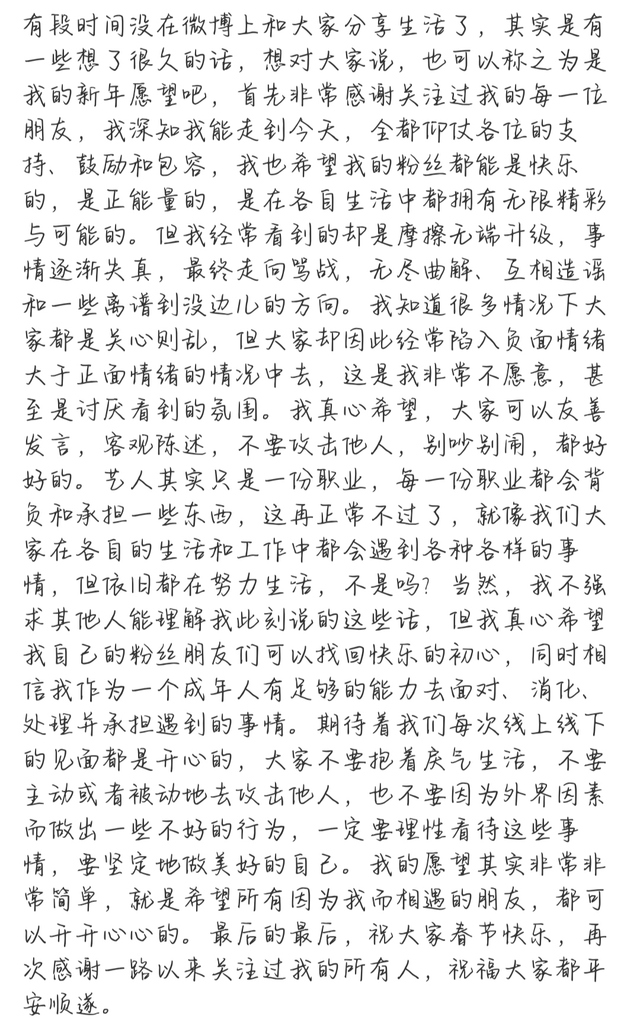 有段时间没在微博上和大家分享生活了，其实是有
一些想了很久的话，想对大家说，也可以称之为是
我的新年愿望吧，首先非常感谢关注过我的每一位
朋友，我深知我能走到今天，全都仰仗各位的支
持、鼓励和包容，我也希望我的粉丝都能是快乐
的，是正能量的，是在各自生活中都拥有无限精彩
与可能的。但我经常看到的却是摩擦无端升级，事
情逐渐失真，最终走向骂战，无尽曲解、互相造谣
和一些离谱到没边儿的方向。我知道很多情况下大
家都是关心则乱，但大家却因此经常陷入负面情绪
大于正面情绪的情况中去，这是我非常不愿意，甚
至是讨厌看到的氛围。我真心希望，大家可以友善
发言，客观陈述，不要攻击他人，别吵别闹，都好
好的。艺人其实只是一份职业，每一份职业都会背
负和承担一些东西，这再正常不过了，就像我们大
家在各自的生活和工作中都会遇到各种各样的事
情，但依旧都在努力生活，不是吗？当然，我不强
求其他人能理解我此刻说的这些话，但我真心希望
我自己的粉丝朋友们可以找回快乐的初心，同时相
信我作为一个成年人有足够的能力去面对、消化、
处理并承担遇到的事情。期待着我们每次线上线下
的见面都是开心的，大家不要抱着戾气生活，不要
主动或者被动地去攻击他人，也不要因为外界因素
而做出一些不好的行为，一定要理性看待这些事
情，要坚定地做美好的自己。我的愿望其实非常非
常简单，就是希望所有因为我而相遇的朋友，都可
以开开心心的。最后的最后，祝大家春节快乐，再
次感谢一路以来关注过我的所有人，祝福大家都平
安顺遂。